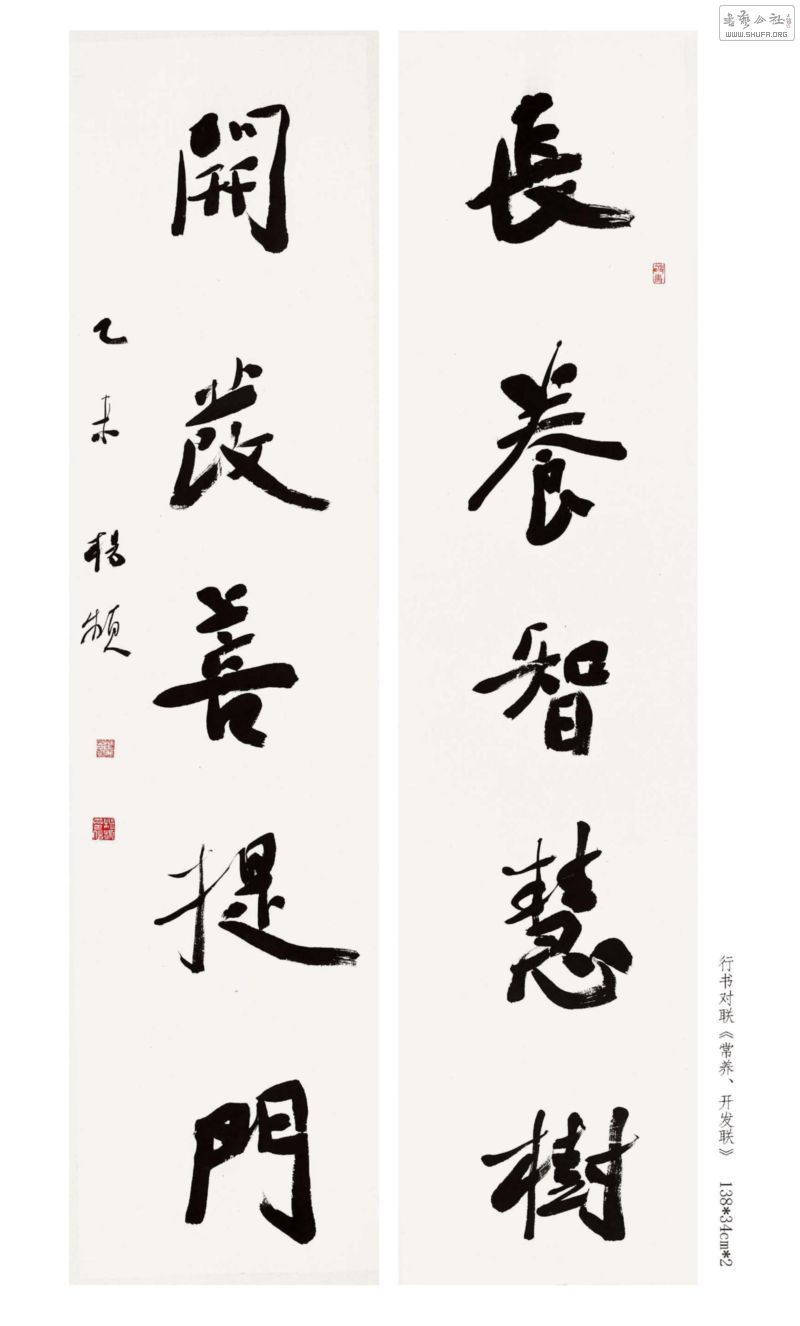 書藝公社
WWW.SHUFA.ORG
長養智慧樹
開發善提門
乙未 楊頻
行书对联《常养、开发联》 138*34cm*2